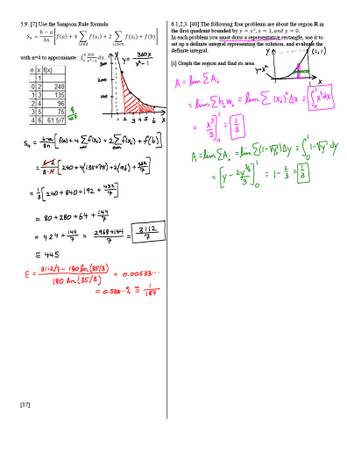 5.9. [7] Use the Simpson Rule formula
S_n = (b − a)/3n [f(a) + 4 Σ f(x_i) + 2 Σ f(x_i) + f(b)]
with n=4 to approximate:
y = 360x/(x²−1)
n x f(x)
1
0 2 240
1 3 135
2 4 96
3 5 75
4 6 61 5/7
300
200
100
1 2 3 4 5 6 X
= 1/3 [240 + 540 + 192 + 432/7]
= 80 + 280 + 64 + 144/7
= 424 + 144/7 = (2968+144)/7 = 3112/7
≅ 445
E = (3112/7 − 180 ln(35/3)) / (180 ln(35/3)) = 0.00533...
= 0.533...% ≅ 1/187
[37]
6.1,2,3. [40] The following four problems are about the region R in
the first quadrant bounded by y = x², x = 1, and y = 0.
In each problem you must draw a representative rectangle, use it to
set up a definite integral representing the solution, and evaluate the
definite integral.
(i) Graph the region and find its area.
y
(1,1)
y=x²
x
A = lim Σ A_i
= lim Σ h_i w_i = lim Σ (x_i)² Δx = ∫₀¹ x² dx
= x³/3 ]₀¹ = 1/3
A = lim Σ A_i = lim Σ (1−√y_i) Δy = ∫₀¹ 1−√y dy
= [y − 2y^(3/2)/3]₀¹ = 1 − 2/3 = 1/3